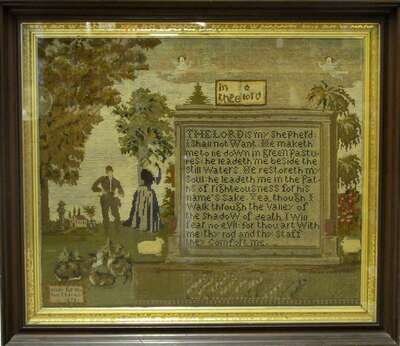 in
thee
lord
THE LORD is my Shepherd
I Shall not Want. He maketh
me to lie down in green Pastu-
res he leadeth me beside the
Still Waters. He restoreth my
Soul he leadeth me in the Pat
hs of righteousness for his
name's Sake. Yea, though I
Walk through the Valley of
the Shadow of death, I Will
fear no evil: for thou art With
me: thy rod and thy Staff
they Comfort me